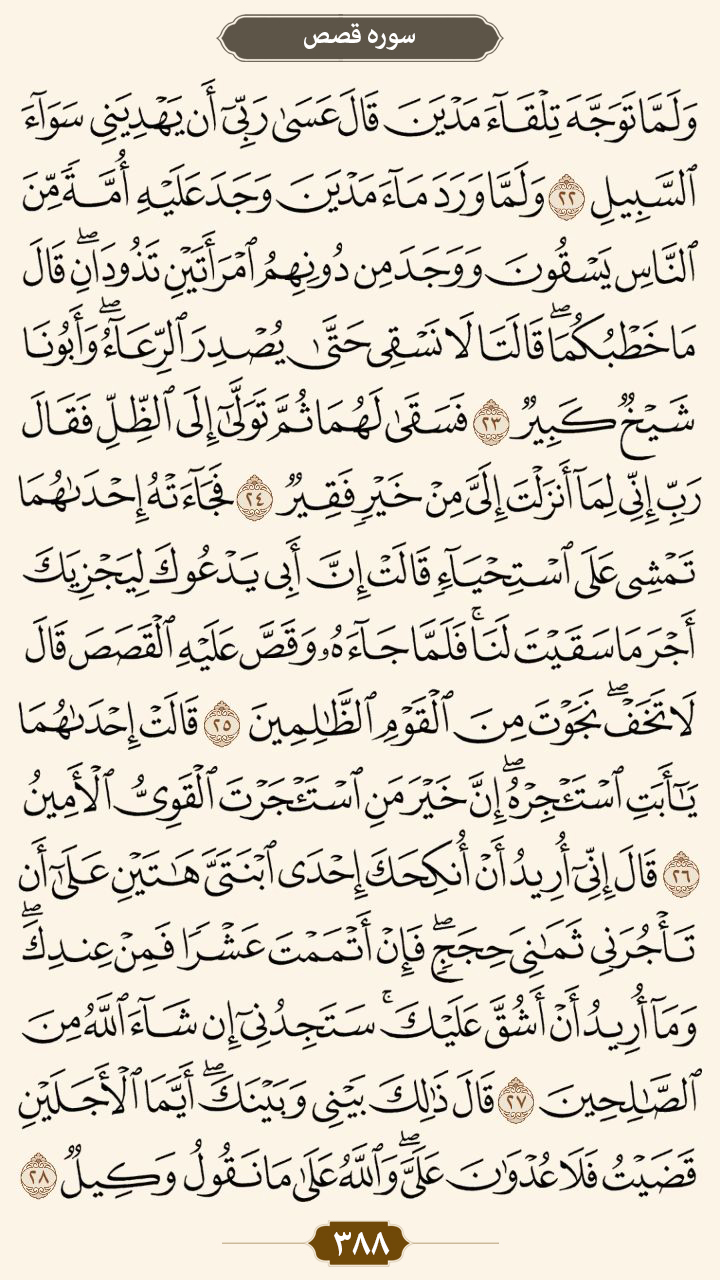 سوره قصص
وَلَمَّا تَوَجَّهَ تِلْقَآءَ مَدْيَنَ قَالَ عَسَىٰ رَبِّىٓ أَن يَهْدِيَنِى سَوَآءَ
ٱلسَّبِيلِ ٢٢ وَلَمَّا وَرَدَ مَآءَ مَدْيَنَ وَجَدَ عَلَيْهِ أُمَّةً مِّنَ
ٱلنَّاسِ يَسْقُونَ وَوَجَدَ مِن دُونِهِمُ ٱمْرَأَتَيْنِ تَذُودَانِۖ قَالَ
مَا خَطْبُكُمَاۖ قَالَتَا لَا نَسْقِى حَتَّىٰ يُصْدِرَ ٱلرِّعَآءُۖ وَأَبُونَا
شَيْخٌ كَبِيرٌ ٢٣ فَسَقَىٰ لَهُمَا ثُمَّ تَوَلَّىٰٓ إِلَى ٱلظِّلِّ فَقَالَ
رَبِّ إِنِّى لِمَآ أَنزَلْتَ إِلَىَّ مِنْ خَيْرٍ فَقِيرٌ ٢٤ فَجَآءَتْهُ إِحْدَىٰهُمَا
تَمْشِى عَلَى ٱسْتِحْيَآءٍ قَالَتْ إِنَّ أَبِى يَدْعُوكَ لِيَجْزِيَكَ
أَجْرَ مَا سَقَيْتَ لَنَاۚ فَلَمَّا جَآءَهُۥ وَقَصَّ عَلَيْهِ ٱلْقَصَصَ قَالَ
لَا تَخَفْۖ نَجَوْتَ مِنَ ٱلْقَوْمِ ٱلظَّٰلِمِينَ ٢٥ قَالَتْ إِحْدَىٰهُمَا
يَٰٓأَبَتِ ٱسْتَـْٔجِرْهُۖ إِنَّ خَيْرَ مَنِ ٱسْتَـْٔجَرْتَ ٱلْقَوِىُّ ٱلْأَمِينُ
٢٦ قَالَ إِنِّىٓ أُرِيدُ أَنْ أُنكِحَكَ إِحْدَى ٱبْنَتَىَّ هَٰتَيْنِ عَلَىٰٓ أَن
تَأْجُرَنِى ثَمَٰنِىَ حِجَجٍۖ فَإِنْ أَتْمَمْتَ عَشْرًا فَمِنْ عِندِكَۖ
وَمَآ أُرِيدُ أَنْ أَشُقَّ عَلَيْكَۚ سَتَجِدُنِىٓ إِن شَآءَ ٱللَّهُ مِنَ
ٱلصَّٰلِحِينَ ٢٧ قَالَ ذَٰلِكَ بَيْنِى وَبَيْنَكَۖ أَيَّمَا ٱلْأَجَلَيْنِ
قَضَيْتُ فَلَا عُدْوَٰنَ عَلَىَّۖ وَٱللَّهُ عَلَىٰ مَا نَقُولُ وَكِيلٌ ٢٨
٣٨٨